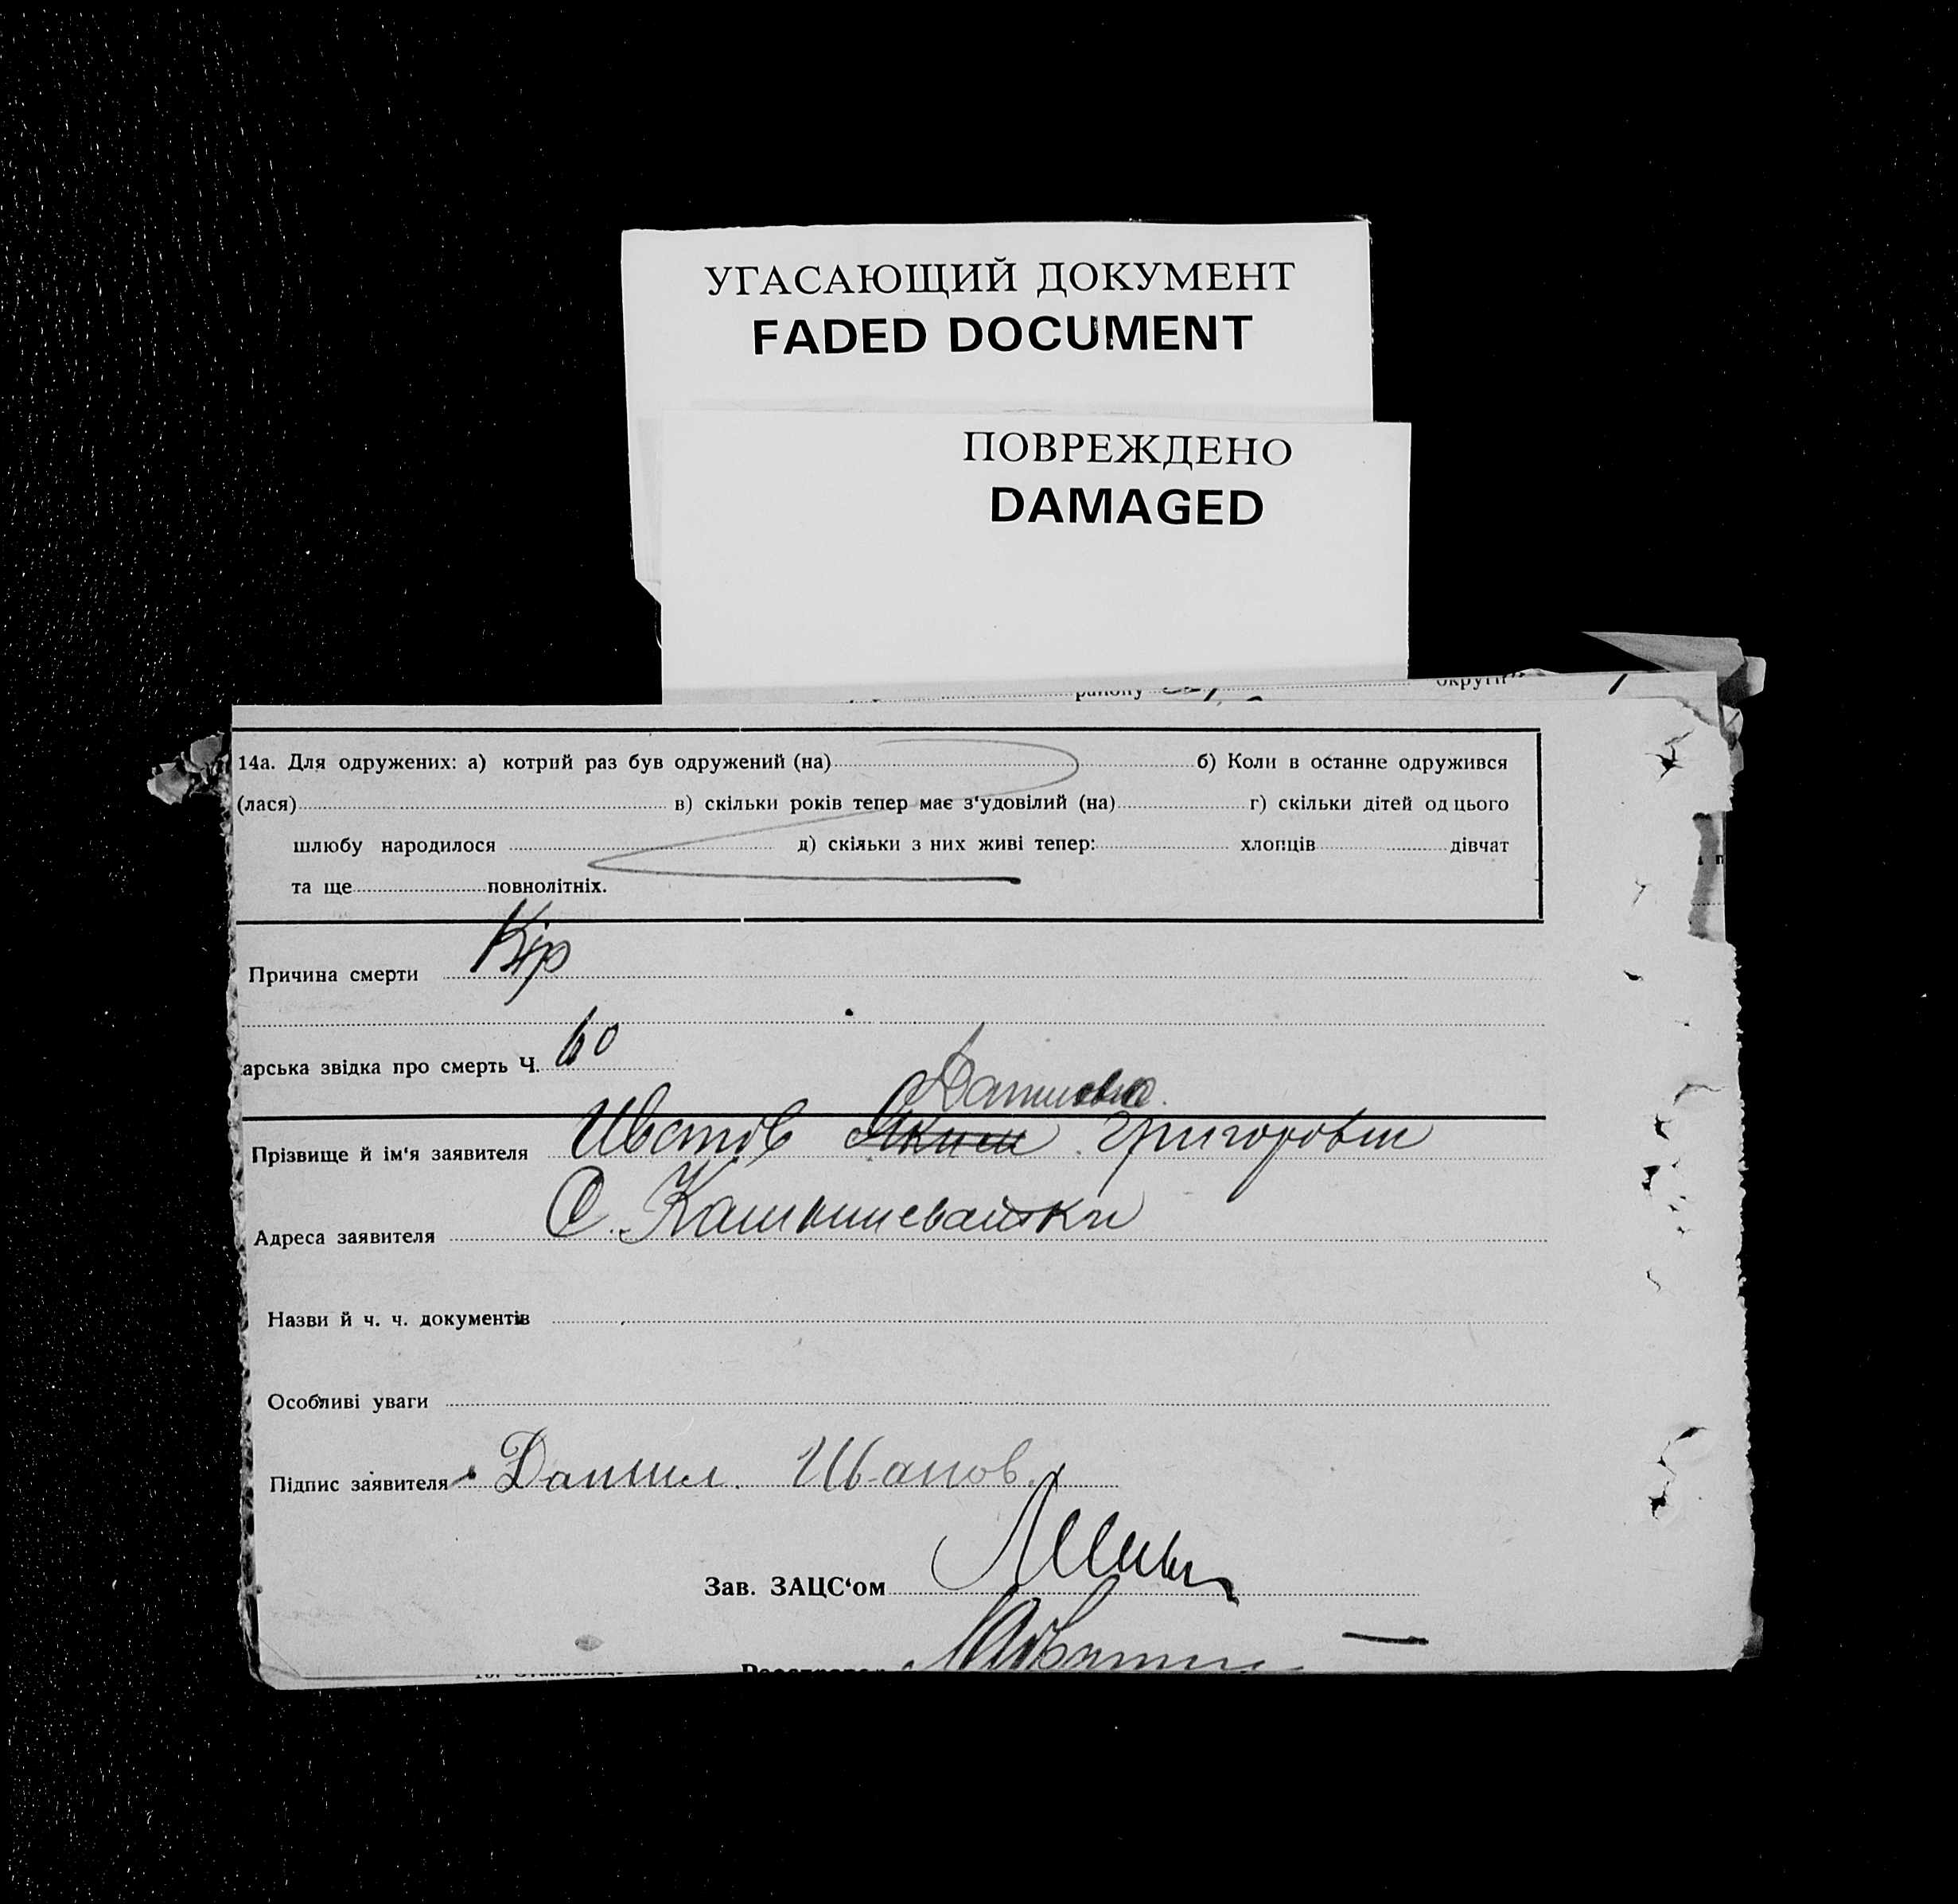 УГАСАЮЩИЙ ДОКУМЕНТ
FADED DOCUMENT
ПОВРЕЖДЕНО
DAMAGED
району округи
14а. Для одружених: а) котрий раз був одружений (на) б) Коли в останне одружився
(лася) в) скільки років тепер має з'удовілий (на) г) скільки дітей од цього
шлюбу народилося д) скільки з них живі тепер: хлопців дівчат
та ще повнолітніх.
Причина смерти Кір
арська звідка про смерть Ч. 60
Прізвище й ім'я заявителя Григорович
Адреса заявителя С.
Назви й ч. ч. документів
Особливі уваги
Підпис заявителя Данил Иванов
Зав. ЗАЦС'ом